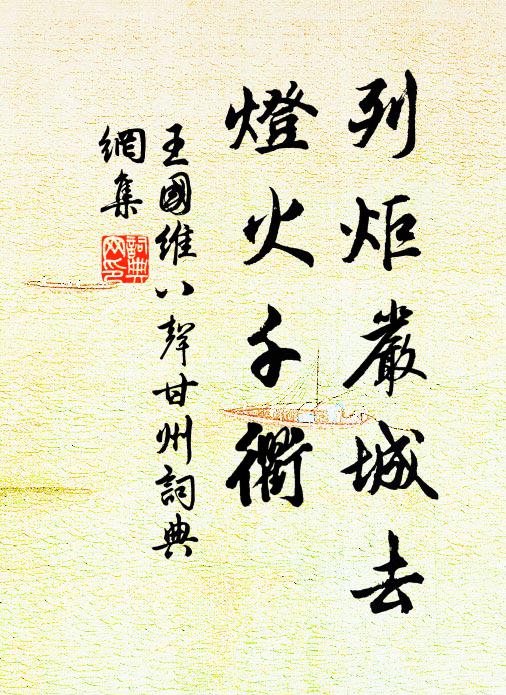 列炬嚴城去
燈火千衢
王國維八聲甘州詞典
網集
詞典
网印